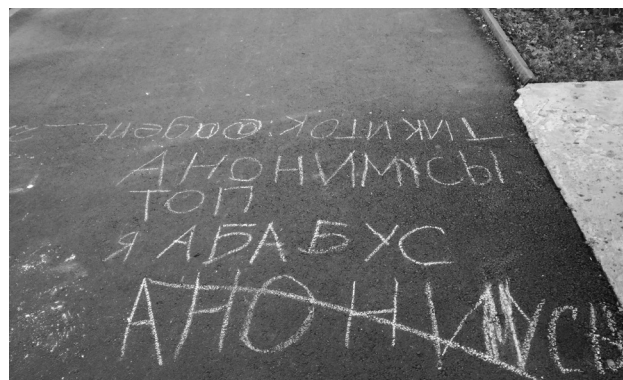 ТИКИТОК:@agent_
АНОНИМУСЫ
ТОП
Я АБАБУС
АНОНИМУСЫ